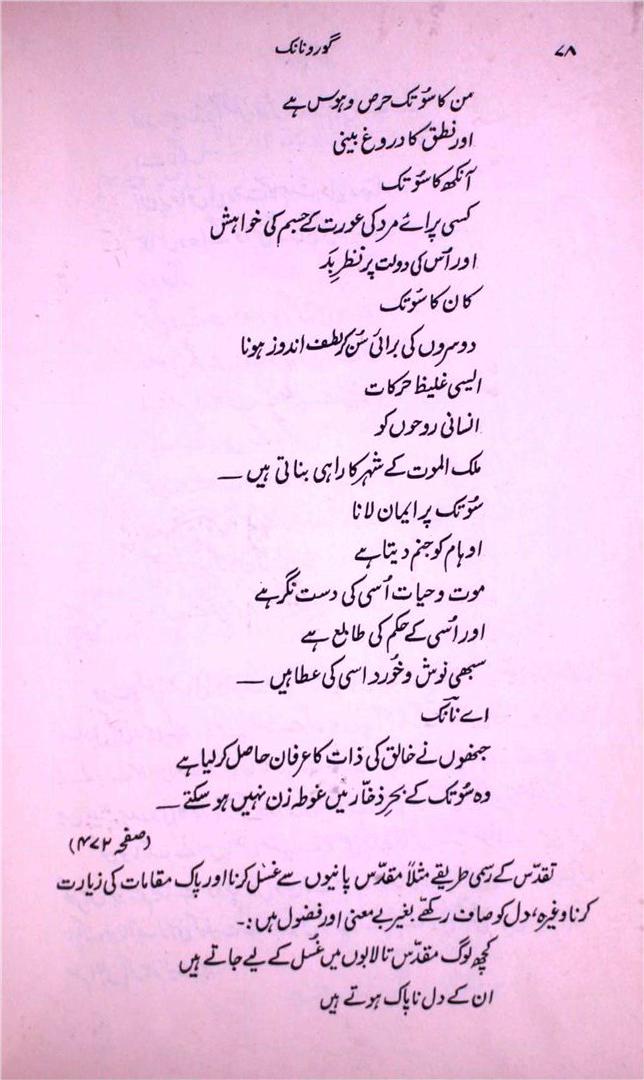 ۷۸
گورو نانک
من کا سُوتک حرص و ہوس ہے
اور نطق کا دروغ بینی
آنکھ کا سُوتک
کسی پرائے مرد کی عورت کے جسم کی خواہش
اور اُس کی دولت پر نظرِ بَد
کان کا سُوتک
دوسروں کی برائی سُن کر لطف اندوز ہونا
ایسی غلیظ حرکات
انسانی روحوں کو
ملک الموت کے شہر کا راہی بناتی ہیں ــ
سُوتک پر ایمان لانا
اوہام کو جنم دیتا ہے
موت و حیات اُسی کی دست نگر ہے
اور اُسی کے حکم کی طابع ہے
سبھی نوش و خورد اسی کی عطا ہیں ــ
اے نانک
جنھوں نے خالق کی ذات کا عرفان حاصل کر لیا ہے
وہ سُوتک کے بحرِ ذخّار میں غوطہ زن نہیں ہو سکتے ــ
(صفحہ ۴۷۲)
تقدّس کے رسمی طریقے مثلاً مقدّس پانیوں سے غسل کرنا اور پاک مقامات کی زیارت
کرنا وغیرہ، دل کو صاف رکھے بغیر بے معنی اور فضول ہیں :۔
کچھ لوگ مقدّس تالابوں میں غسل کے لیے جاتے ہیں
ان کے دل ناپاک ہوتے ہیں